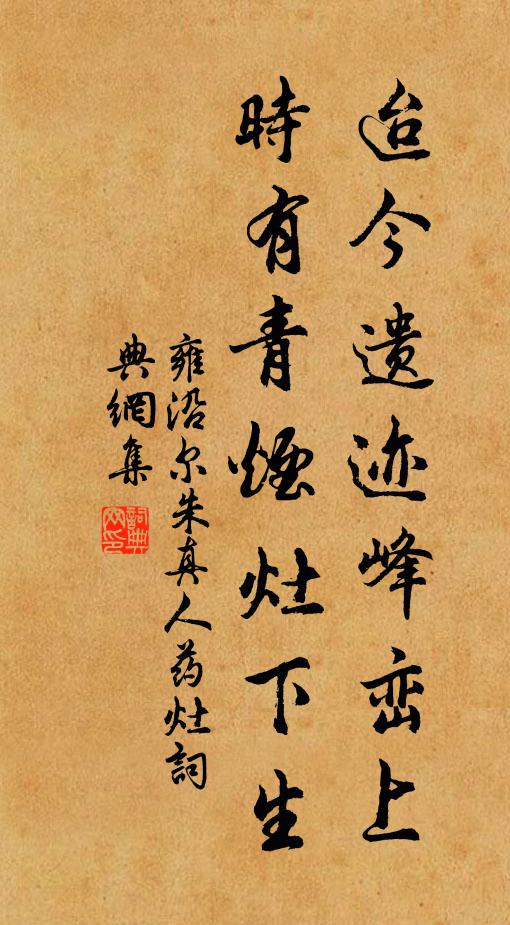 迨今遗迹峰峦上
時有青煙灶下生
雍沿尔朱真人药灶詞
典網集
詞典網印